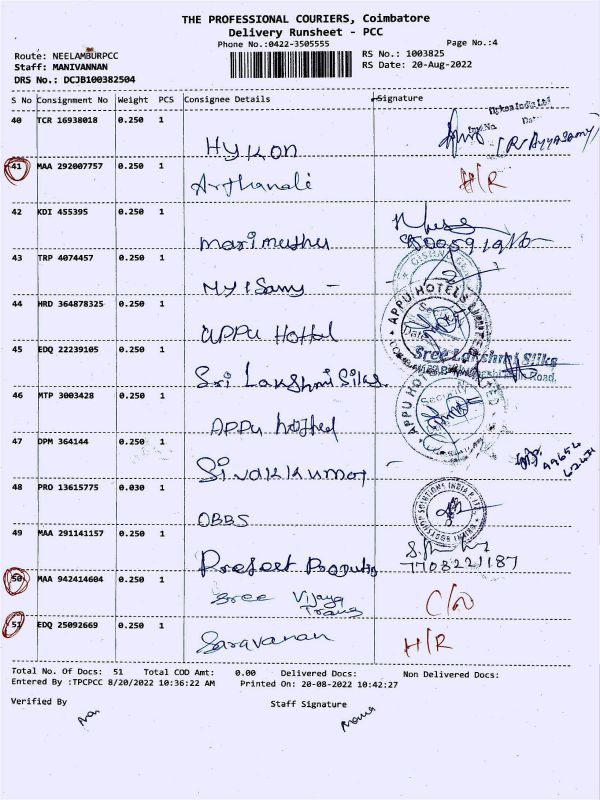 THE PROFESSIONAL COURIERS, Coimbatore
Delivery Runsheet - PCC
Phone No.:0422-3505555
Page No.:4
Route: NEELAMBURPCC
Staff: MANIVANNAN
DRS No.: DCJB100382504
RS No.: 1003825
RS Date: 20-Aug-2022
S No Consignment No Weight PCS Consignee Details Signature
40 TCR 16938018 0.250 1 HYKON
41 MAA 292007757 0.250 1 Arthanali H/R
42 KDI 455395 0.250 1 marimuthu
43 TRP 4074457 0.250 1 MYlSamy -
44 HRD 364878325 0.250 1 APPU Hottel APPU HOTELS LIMITED
45 EDQ 22239105 0.250 1 Sri Lakshmi Silks Sree Lakshmi Silks
46 MTP 3003428 0.250 1 APPU hothel APPU HOTELS LIMITED
47 DPM 364144 0.250 1 Sivakkumar
48 PRO 13615775 0.030 1 OBBS
49 MAA 291141157 0.250 1 7708221187
50 MAA 942414604 0.250 1 Sree Vijaya Trans
51 EDQ 25092669 0.250 1 Saravanan H/R
Total No. Of Docs: 51 Total COD Amt: 0.00 Delivered Docs: Non Delivered Docs:
Entered By :TPCPCC 8/20/2022 10:36:22 AM Printed On: 20-08-2022 10:42:27
Verified By Staff Signature